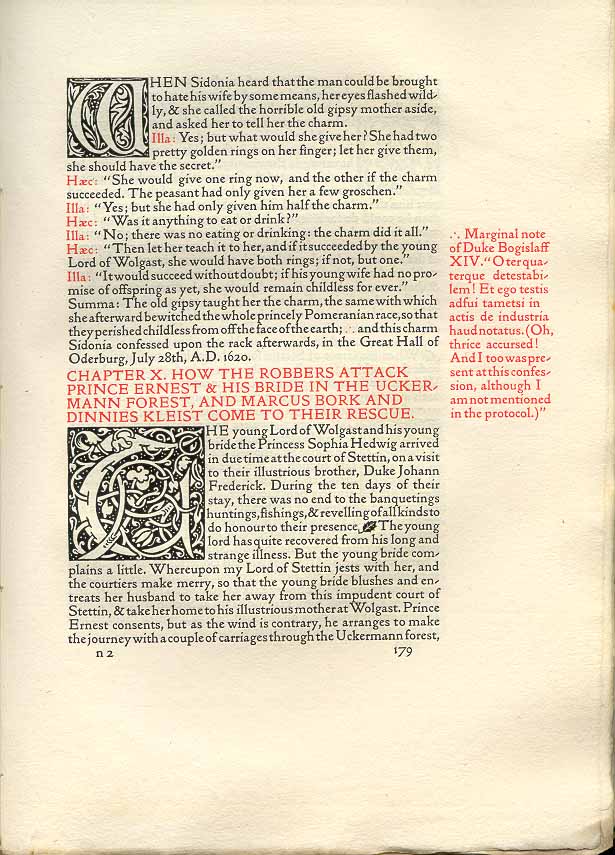 WHEN Sidonia heard that the man could be brought
to hate his wife by some means, her eyes flashed wild-
ly, & she called the horrible old gipsy mother aside,
and asked her to tell her the charm.
Illa: Yes; but what would she give her? She had two
pretty golden rings on her finger; let her give them,
she should have the secret."
Hæc: "She would give one ring now, and the other if the charm
succeeded. The peasant had only given her a few groschen."
Illa: "Yes; but she had only given him half the charm."
Hæc: "Was it anything to eat or drink?"
Illa: "No; there was no eating or drinking: the charm did it all."
Hæc: "Then let her teach it to her, and if it succeeded by the young
Lord of Wolgast, she would have both rings; if not, but one."
Illa: "It would succeed without doubt; if his young wife had no pro-
mise of offspring as yet, she would remain childless for ever."
Summa: The old gipsy taught her the charm, the same with which
she afterward bewitched the whole princely Pomeranian race, so that
they perished childless from off the face of the earth; ∴ and this charm
Sidonia confessed upon the rack afterwards, in the Great Hall of
Oderburg, July 28th, A.D. 1620.
∴ Marginal note
of Duke Bogislaff
XIV. "O ter qua-
terque detestabi-
lem! Et ego testis
adfui tametsi in
actis de industria
haud notatus. (Oh,
thrice accursed!
And I too was pre-
sent at this confes-
sion, although I
am not mentioned
in the protocol.)"
CHAPTER X. HOW THE ROBBERS ATTACK
PRINCE ERNEST & HIS BRIDE IN THE UCKER-
MANN FOREST, AND MARCUS BORK AND
DINNIES KLEIST COME TO THEIR RESCUE.
THE young Lord of Wolgast and his young
bride the Princess Sophia Hedwig arrived
in due time at the court of Stettin, on a visit
to their illustrious brother, Duke Johann
Frederick. During the ten days of their
stay, there was no end to the banquetings
huntings, fishings, & revelling of all kinds to
do honour to their presence. The young
lord has quite recovered from his long and
strange illness. But the young bride com-
plains a little. Whereupon my Lord of Stettin jests with her, and
the courtiers make merry, so that the young bride blushes and en-
treats her husband to take her away from this impudent court of
Stettin, & take her home to his illustrious mother at Wolgast. Prince
Ernest consents, but as the wind is contrary, he arranges to make
the journey with a couple of carriages through the Uckermann forest,
n 2 179